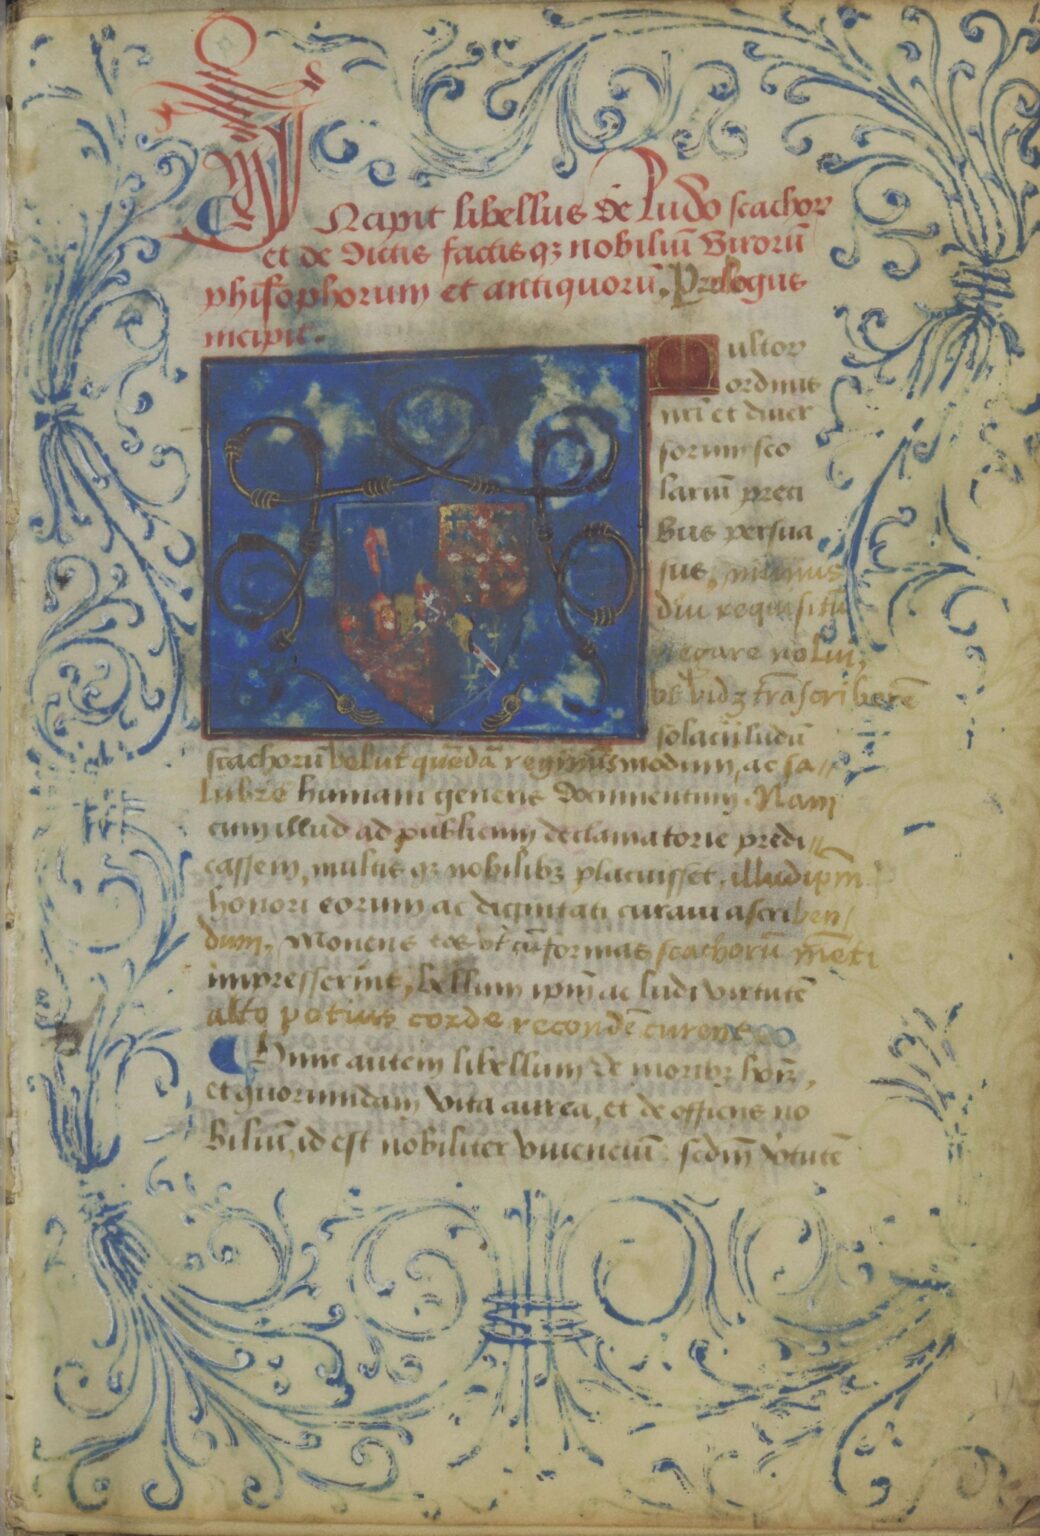 Incipit libellus de Ludo scachoꝝ
et de dictis factisqꝫ nobiliū Virorū
phīsophorum et antiquorū. Prologus
incipit.
Multoꝝ
ordinis
nr̄i et diuer
sorum sco
lariū preci
bus persua
sus,
diu requisitū
negare nolui,
vt vidꝫ trāscriberē
solacij ludū
scachorū velut quēdā regiminis modum, ac sa//
lubre humani generis documentum. Nam
cum illud ad publicum declamatorie predi//
cassem, multis qꝫ nobilibꝫ placuisset, illud ipm̄
honori eorum ac dignitati curaui ascriben/
dum. Monens eos vt cū formas scachorū mēti
impresserint, bellum ipm̄ ac ludi virtutē
alto potius corde recondē curent
Hunc autem libellum de moribꝫ hoīm,
et quorumdam vita aurea, et de officijs no
biliū, id est nobiliter viuenciū. scdm̄ v̄tutē